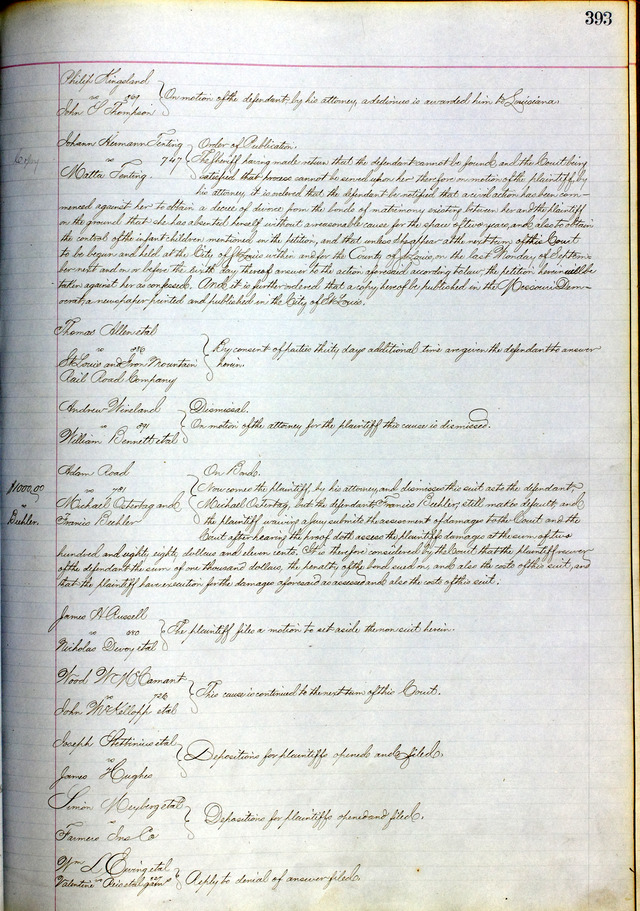 393
Philip Kingsland
vs
John S Thompson
On motion of the defendant by his attorney, a dedimus is awarded him to Louisiana.
Johann Hermann Tenting
vs 747
Metta Tenting.
Copy
Order of Publication.
The Sheriff having made return that the defendant cannot be found, and the Court being
satisfied that process cannot be served upon her therefore on motion of the plaintiff by
his attorney, it is ordered that the defendant be notified that a civil action has been com-
menced against her to obtain a decree of divorce from the bonds of matrimony existing between her and the plaintiff
on the ground that she has absented herself without a reasonable cause for the space of two years, and also to obtain
the control of the infant children, mentioned in the petition, and that unless she appear at the next term of this Court
to be begun and held at the City of St Louis within and for the County of St Louis, on the last Monday of Septem-
ber next and on or before the sixth day thereof answer to the action aforesaid according to law, the petition herein will be
taken against her as confessed. And it is further ordered that a copy hereof be published in the Missouri Dem-
ocrat, a newspaper printed and published in the City of St Louis.
Thomas Allen et al
vs
St Louis and Iron Mountain
Rail Road Company
By consent of parties thirty days additional time are given the defendant to answer
herein.
Andrew Wineland
vs
William Bennett et al
Dismissal.
On motion of the attorney for the plaintiff this cause is dismissed.
Adam Road
vs 781
Michael Ostertag and
Francis Buhler
$1000.00
vs
Buhler.
On Bond.
Now comes the plaintiff, by his attorney, and dismisses this suit as to the defendant,
Michael Ostertag, but the defendant Francis Buhler, still makes default, and
the plaintiff waiving a jury submits the assessment of damages to the Court and the
Court after hearing the proof doth assess the plaintiffs damages at the sum of two
hundred and eighty eight dollars and eleven cents. It is therefore considered by the Court that the plaintiff recover
of the defendant the sum of one thousand dollars, the penalty of the bond sued on, and also the costs of this suit, and
that the plaintiff have execution for the damages aforesaid as assessed and also the costs of this suit.
James H Russell
vs
Nicholas Devoy et al
The plaintiff files a motion to set aside the non suit herein.
Wood W McCamant
vs
John McKellopp et al
This cause is continued to the next term of this Court.
Joseph Stettinius et al
vs
James Hughes
Depositions for plaintiffs opened and filed.
Simon Meyberg et al
vs
Farmers Ins Co
Depositions for plaintiffs opened and filed.
Wm L Ewing et al
vs
Valentine Reis et al
Reply to denial of answer filed.